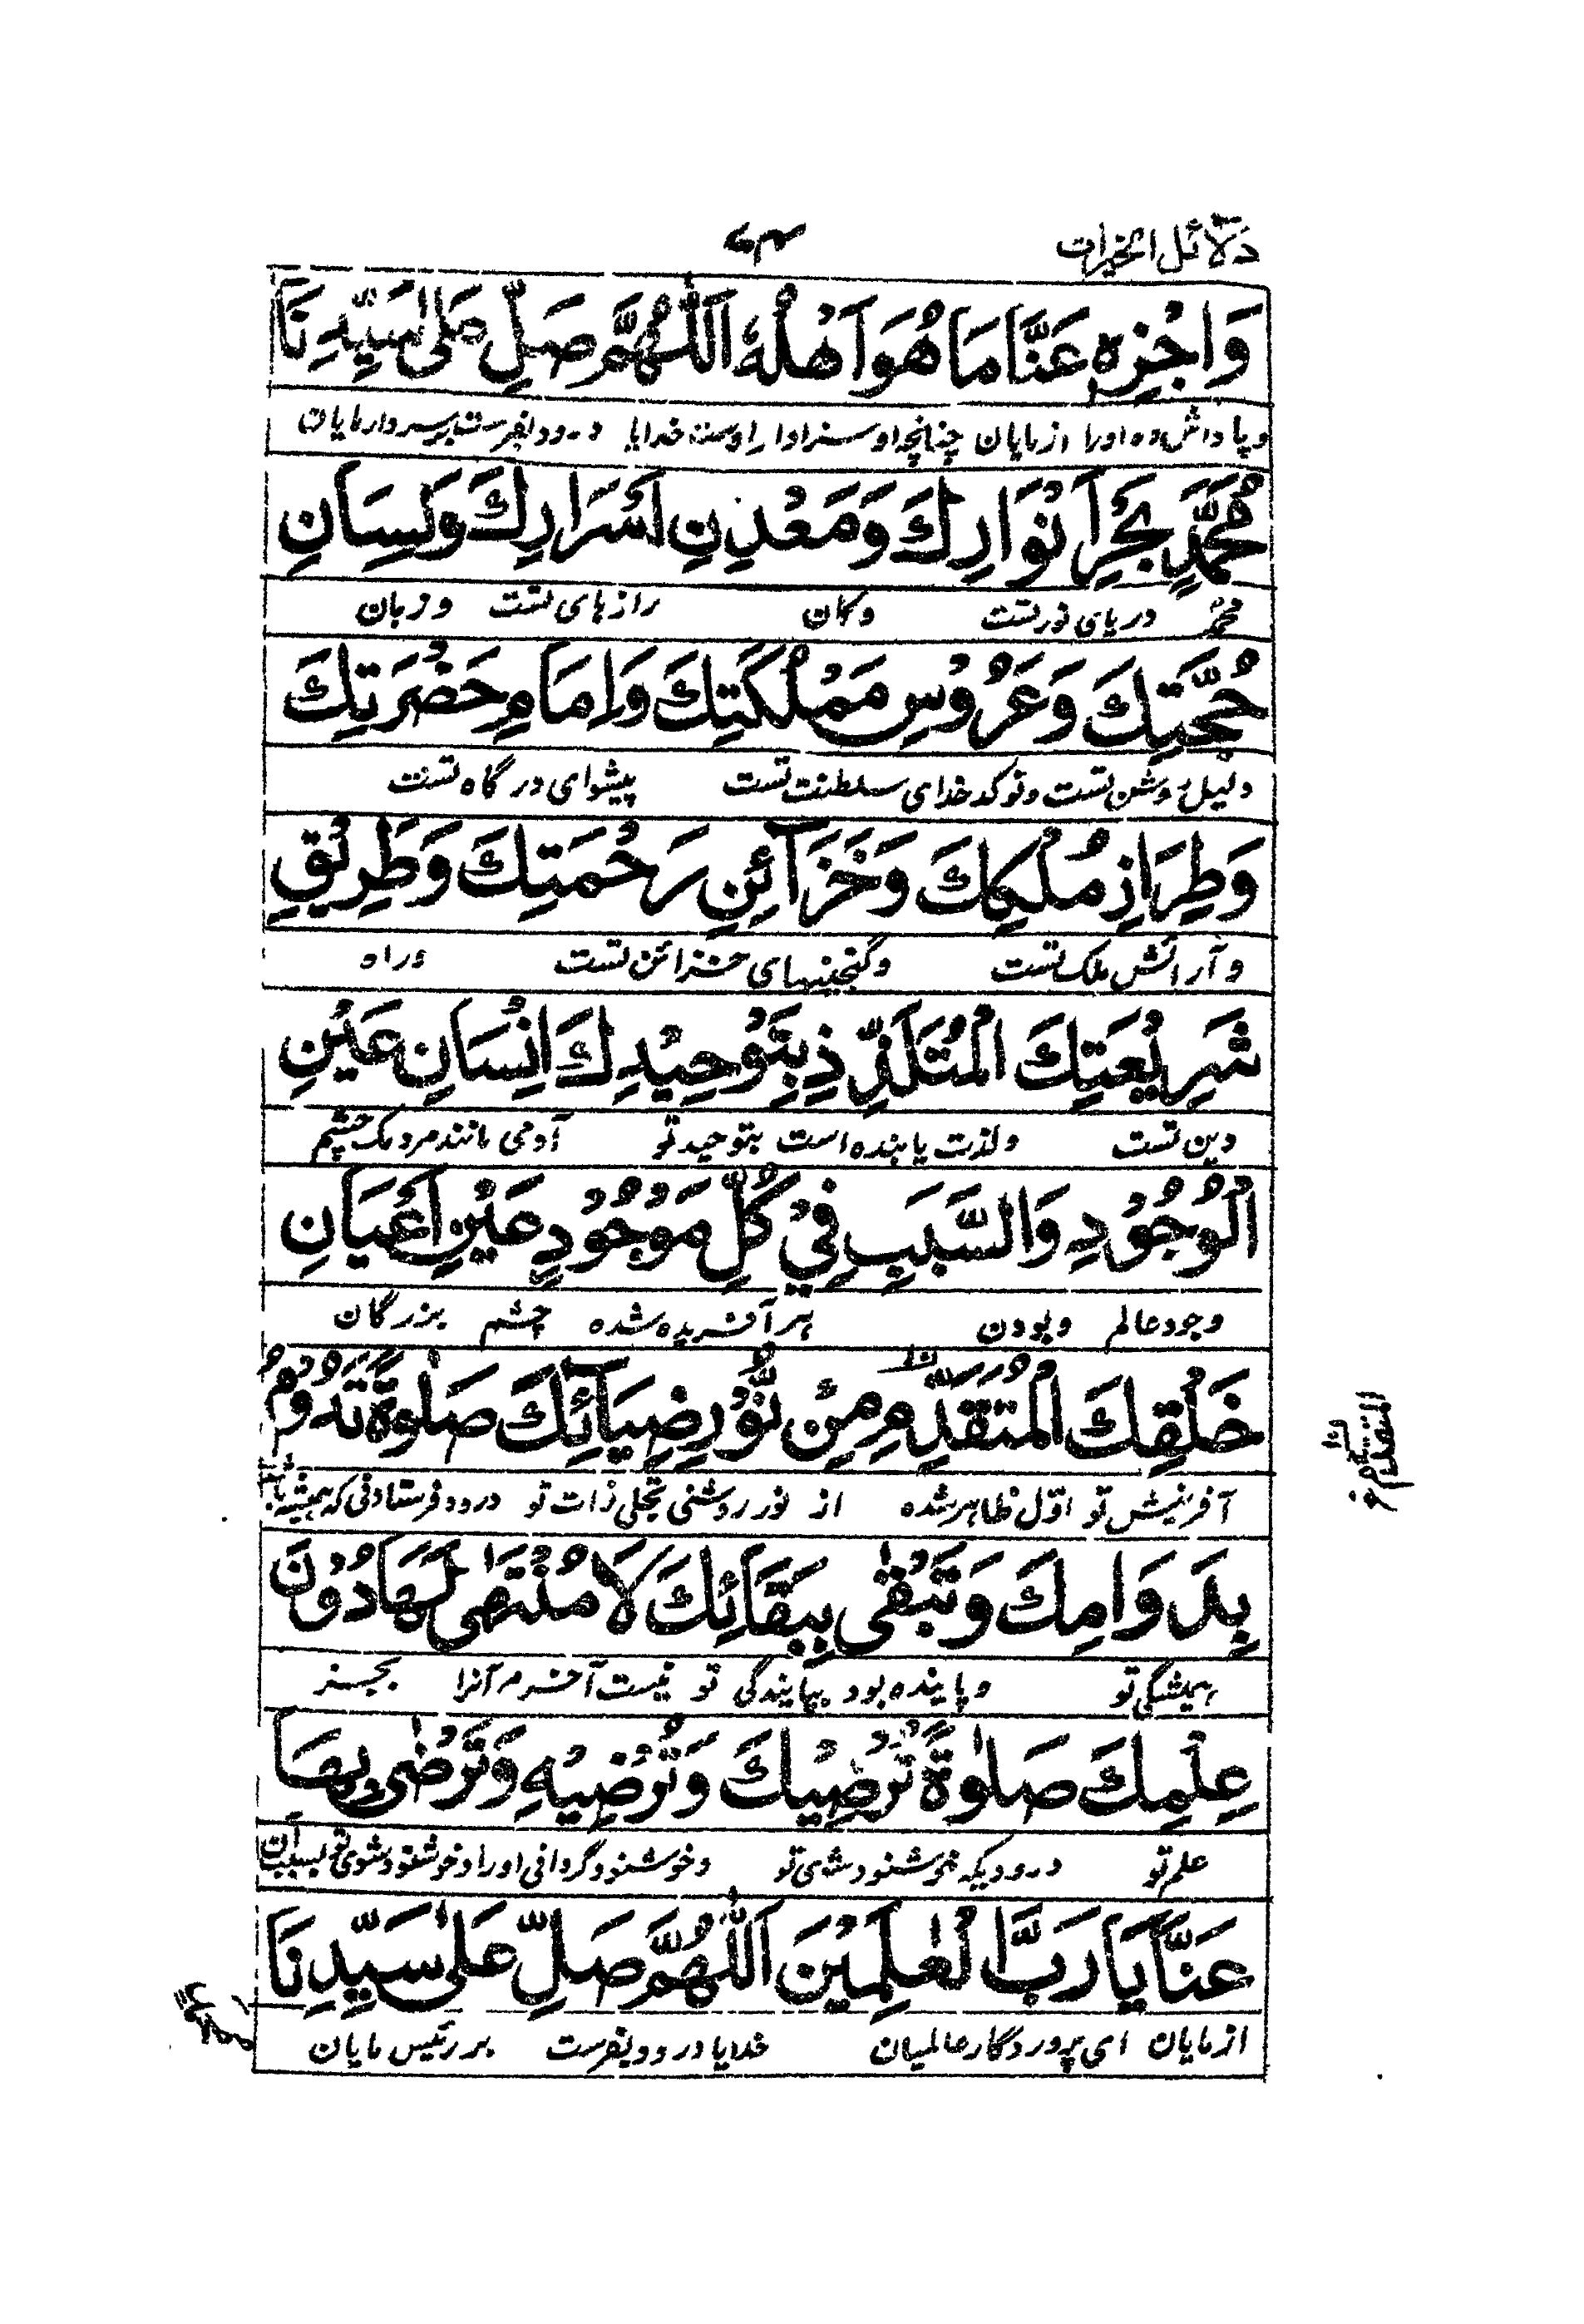 دلائل الخیرات
وَاجْزِهٖ عَنَّا مَا هُوَ اَهْلُهٗ اَللّٰهُمَّ صَلِّ عَلٰى سَيِّدِنَا
و پاداش ده او را از مایان چنانچه او سزاوار اوست خدایا درود بفرست بر سردار مایان
مُحَمَّدٍ بَحْرِ اَنْوَارِكَ وَمَعْدِنِ اَسْرَارِكَ وَلِسَانِ
محمد دریای نور تست و کان رازهای تست و زبان
حُجَّتِكَ وَعَرُوْسِ مَمْلَكَتِكَ وَاِمَامِ حَضْرَتِكَ
دلیل روشن تست و نوکدخدای سلطنت تست پیشوای درگاه تست
وَطِرَازِ مُلْكِكَ وَخَزَآئِنِ رَحْمَتِكَ وَطَرِيْقِ
و آرائش ملک تست و گنجینهای خزائن تست وراه
شَرِيْعَتِكَ الْمُتَلَذِّذِ بِتَوْحِيْدِكَ اِنْسَانِ عَيْنِ
دین تست و لذت یابنده است بتوحید تو آدمی مانند مردمک چشم
الْوُجُوْدِ وَالسَّبَبِ فِيْ كُلِّ مَوْجُوْدٍ عَيْنِ اَعْيَانِ
وجود عالم و بودن هر آفریده شده چشم بزرگان
خَلْقِكَ الْمُتَقَدِّمِ مِنْ نُّوْرِ ضِيَآئِكَ صَلٰوةً تَدُوْمُ
آفرینش تو اوّل ظاهر شده از نور روشنی تجلی ذات تو درود فرستادنی که همیشه باشد
بِدَوَامِكَ وَتَبْقٰى بِبَقَائِكَ لَا مُنْتَهٰى لَهَا دُوْنَ
همیشگی تو و پاینده بود بپایندگی تو نیست آخر مر آنرا بجز
عِلْمِكَ صَلٰوةً تُرْضِيْكَ وَتُرْضِيْهِ وَتَرْضٰى بِهَا
علم تو درودیکه خوشنود شوی تو و خوشنود گردانی او را و خوشنود شوی تو بسبب آن
عَنَّا يَا رَبَّ الْعٰلَمِيْنَ اَللّٰهُمَّ صَلِّ عَلٰى سَيِّدِنَا
از مایان ای پروردگار عالمیان خدایا درود بفرست بر رئیس مایان